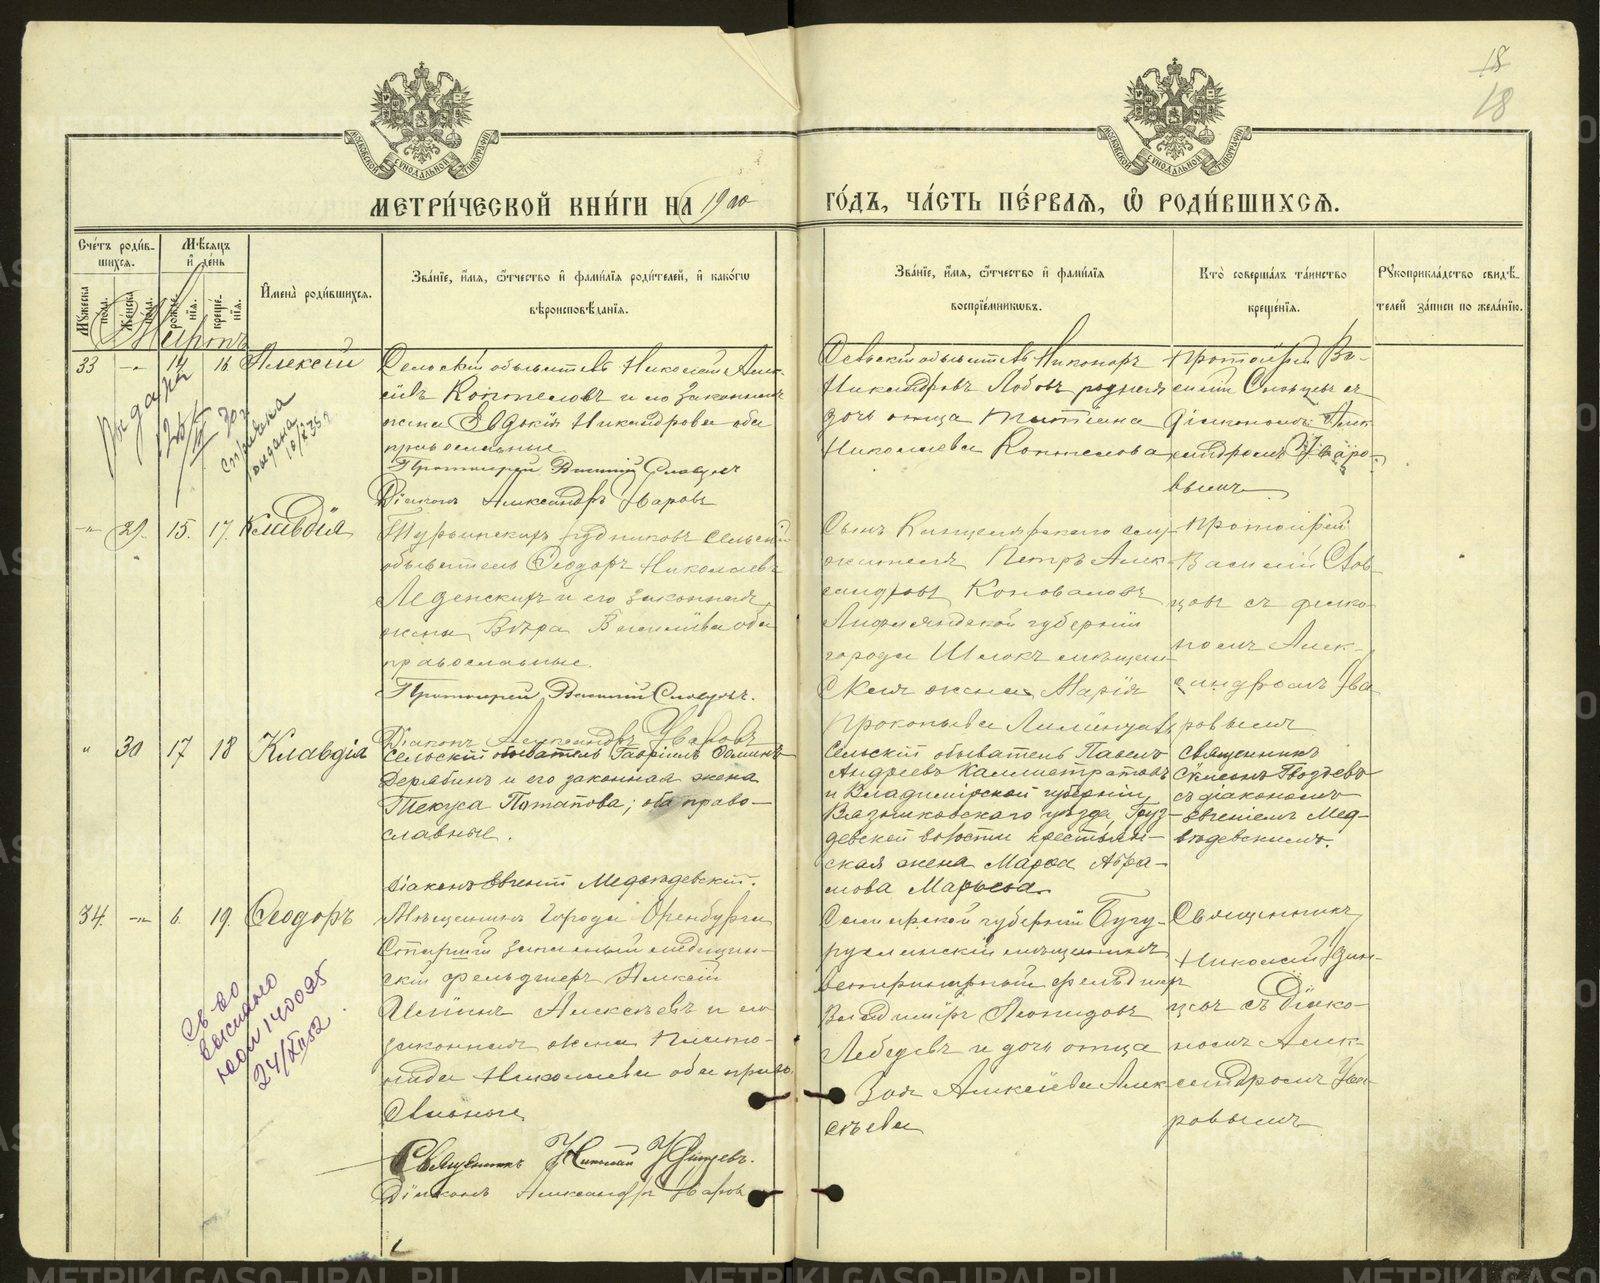 18
18
МЕТРИ́ЧЕСКОЙ КНИ́ГИ НА 1900 ГО́ДЪ, ЧА́СТЬ ПЕ́РВАѦ, Ѽ РОДИ́ВШИХСѦ.
Сче́тъ роди́в-
шихсѧ.
Мѣ́сѧцъ
и де́нь
Имена̀ роди́вшихсѧ.
Зва́нїе, и́мѧ, ѻ҆́тчество и҆ фами́лїѧ роди́телей, и҆ како́гѡ
вѣроисповѣ́данїѧ.
Мꙋ́жеска
по́ла.
Же́нска
по́ла.
рожде́-
нїѧ.
креще́-
нїѧ.
Зва́нїе, и́мѧ, ѻ҆́тчество и҆ фами́лїѧ
воспрїе́мникѡвъ.
Кто̀ соверша́лъ та́инство
креще́нїѧ.
Рꙋкоприкла́дство свидѣ́-
телей за́писи по жела́нїю.
Мартъ
33 -"- 14 16 Алексѣй
Сельскій обыватель Николай Алек-
сѣевъ Коптеловъ и его законная
жена Евдокія Никандрова оба
православные.
Протоіерей Василій Словцовъ
Діаконъ Александръ Уваровъ
Сельскій обыватель Никаноръ
Никандровъ Лобовъ родная
дочь отца Татіана
Николаева Коптелова
Протоіерей Ва-
силій Словцовъ съ
діакономъ Алек-
сандромъ Уваро-
вымъ
справка
выдана
-"- 29. 15. 17. Клавдія
Турьинскихъ рудниковъ сельскій
обыватель Ѳеодоръ Николаевъ
Леденскихъ и его законная
жена Вѣра Василіева оба
православные.
Протоіерей Василій Словцовъ.
Діаконъ Александръ Уваровъ
Сынъ Канцелярскаго слу-
жителя Петръ Алек-
сандровъ Коноваловъ
Лифляндской губерніи
города Шлокъ мѣщан-
ская жена Марія
Прокопьева
Протоіерей
Василій Слов-
цовъ съ діако-
номъ Алек-
сандромъ Ува-
ровымъ
" 30 17 18 Клавдія
Сельскій обыватель Гавріилъ Ѳоминъ
Дерябинъ и его законная жена
Текуса Потапова; оба право-
славные.
Діаконъ Евгеній Медвѣдевскій.
Сельскій обыватель Павелъ
Андреевъ Каллистратовъ
и Владимірской губерніи,
Вязниковскаго уѣзда, Груз-
девской волости крестьян-
ская жена Марѳа Абра-
мова Марьева.
Священникъ
Сѵмеонъ Гвоздевъ
съ діакономъ
Евгеніемъ Мед-
вѣдевскимъ.
34. -"- 6. 19. Ѳеодоръ
Мѣщанинъ города Оренбурга
Старшій запасный медицин-
скій фельдшеръ Алексій
Алексѣевъ и его
законная жена Плато-
нида Николаева оба право-
славные
Священникъ Николай
Діаконъ Александръ Уваровъ
Самарской губерніи Бугу-
русланскій мѣщанинъ
ветеринарный фельдшеръ
Владиміръ Леонидовъ
Лебедевъ и дочь отца
Зоя Алексѣева Алек-
сѣева
Священникъ
Николай
съ Діако-
номъ Алек-
сандромъ Ува-
ровымъ
Св-во
выслано
24/XII 52